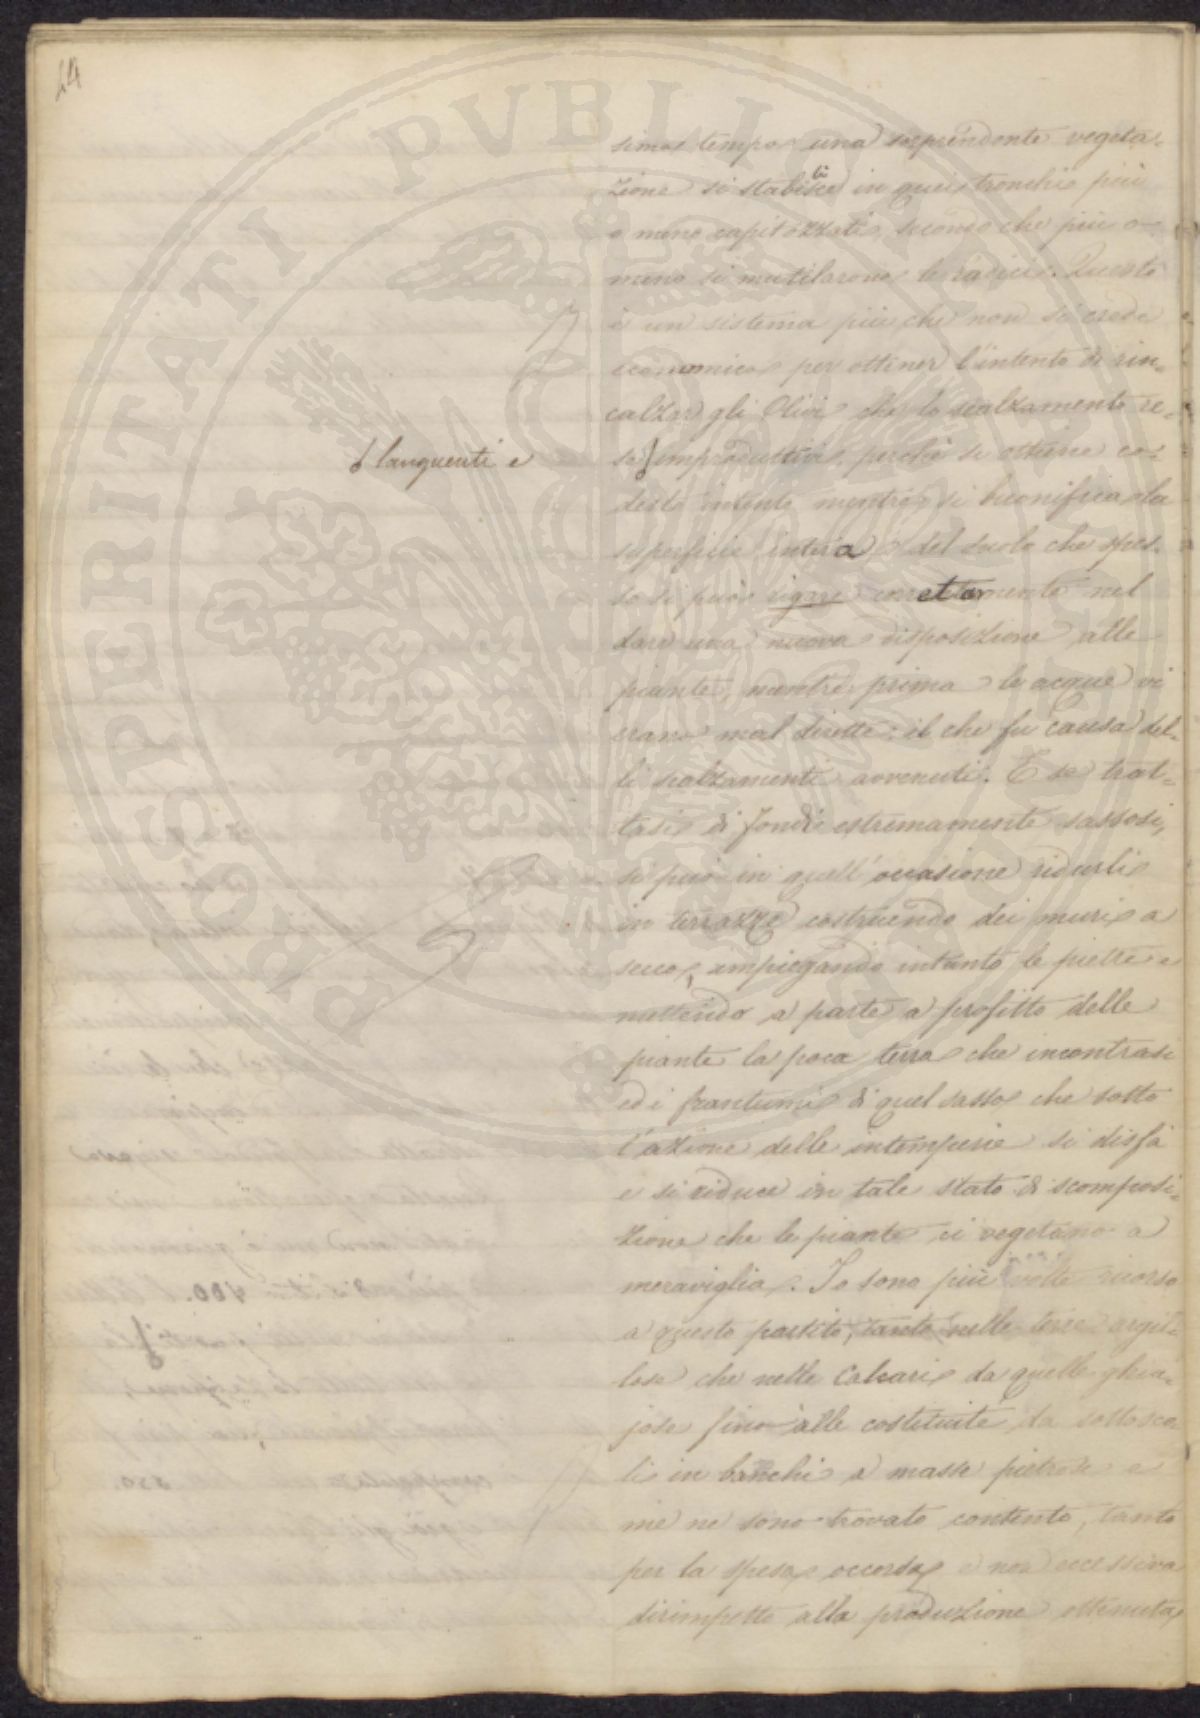 14
simo tempo una sorprendente vegeta-
zione si stabilisce in quei tronchi più
o meno capitozzati, secondo che più o
meno si mutilarono le radici. Questo
è un sistema più che non si crede
economico per ottener l'intento di rin-
calzar gli Olivi che lo scalzamento re-
se improduttivi, perchè si ottiene co-
desto intento mentre si buonifica la
superficie intera del suolo che spes-
so si può rigare correttamente nel
dare una nuova disposizione alle
piante, mentre prima le acque vi
erano mal dirette; il che fu causa del-
li scalzamenti avvenuti. E se trat-
tasi di fondi estremamente sassosi,
si può in quell'occasione ridurli
in terrazze costruendo dei muri a
secco, impiegando intanto le pietre e
mettendo a parte a profitto delle
piante la poca terra che incontrasi
ed i frantumi di quel sasso che sotto
l'azione delle intemperie si disfà
e si riduce in tale stato di scomposi-
zione che le piante ci vegetano a
meraviglia. Io sono più volte ricorso
a questo partito, tanto nelle terre argil-
lose che nelle calcari da quelle ghia-
jose fino alle costituite da sottosco-
li in banchi a masse pietrose e
me ne sono trovato contento, tanto
per la spesa occorsa e non eccessiva
dirimpetto alla produzione ottenuta,
languenti e
PROSPERITATI PVBLICAE